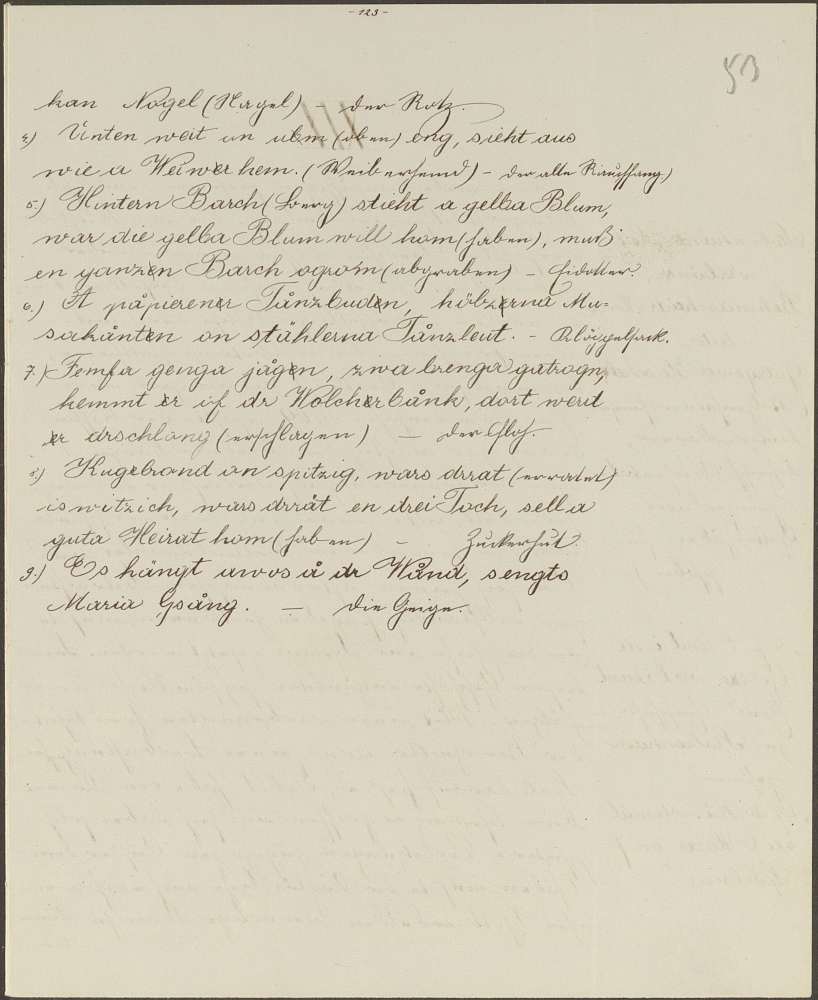 - 123 -
53
kan Nogel (Nagel) - der Rotz.
4.) Unten weit un ubm (oben) eng, sieht aus
wie a Weiwer hem. (Weiberhemd) - der alte Rauchfang)
5.) Hintern Barch (Berg) stieht a gella Blum,
war die gella Blum will hom (haben), muß
en ganzen Barch ogrom (abgraben) - Eidotter.
6.) A påpierener Tånzbuden, hölzerna Mu-
sakånten on stählerna Tånzleut. - Klöppelsack.
7.) Femfa genga jågen, zwa brenga gatrogn,
kemmt er of dr Wolcherbånk, dort werd
er drschlong (erschlagen) - der Floh.
8.) Kugelrond on spitzig, wars drrat (erratet)
is witzich, wars drråt en drei Toch, sell a
guta Heirat hom (haben) - Zuckerhut.
9.) Es hängt awos å dr Wånd, sengts
Maria Gsång. - die Geige.